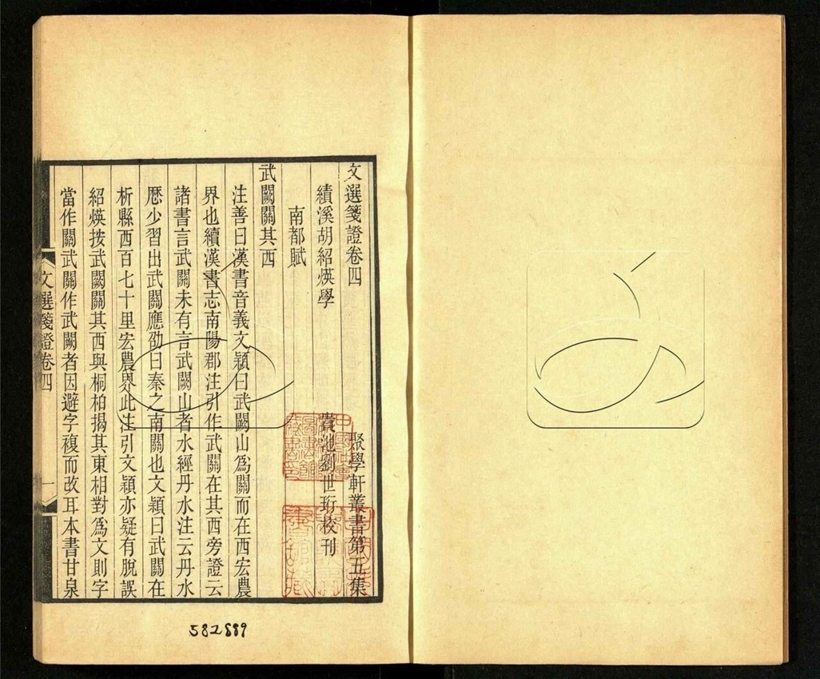 文選箋證卷四
聚學軒叢書第五集
績溪胡紹煐學
貴池劉世珩校刊
南都賦
武闕關其西
注善曰漢書音義文穎曰武闕山為關而在西宏農
界也續漢書志南陽郡注引作武關在其西旁證云
諸書言武關未有言武闕山者水經丹水注云丹水
歷少習出武關應劭曰秦之南關也文穎曰武關在
析縣西百七十里宏農界此注引文穎亦疑有脫誤
紹煐按武闕關其西與桐柏揭其東相對為文則字
當作關武關作武闕者因避字複而改耳本書甘泉
文選箋證卷四
一
582889